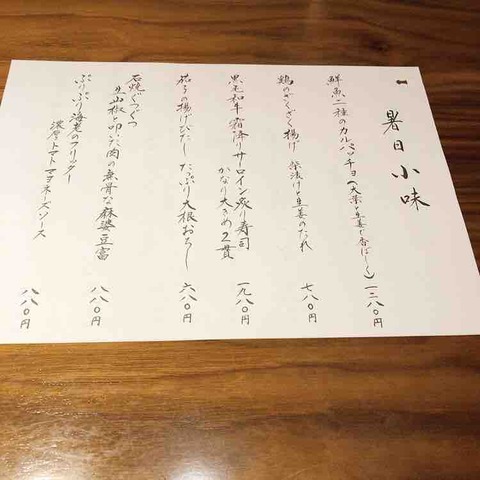 暑日小味
鮮魚二種のカルパッチョ(大葉と生姜で香ばしく) 一二八〇円
鶏のざくざく揚げ 柴漬けと生姜のたれ 七八〇円
黒毛和牛霜降りサーロイン炙り寿司
かなり大きめ2貫 一九八〇円
茄子の揚げびたし たっぷり大根おろし 六八〇円
石焼ぐつぐつ
山椒と叩いた肉の無骨な麻婆豆富 八八〇円
ぷりぷり海老のフリッター
濃厚トマトマヨネーズソース 八八〇円